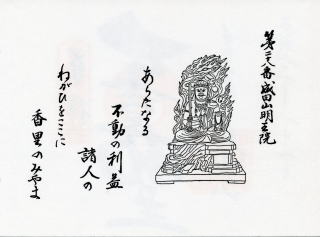 第二十八番成田山明王院
あらたなる
不動の利益
諸人の
わがひをここに
香里のみやま